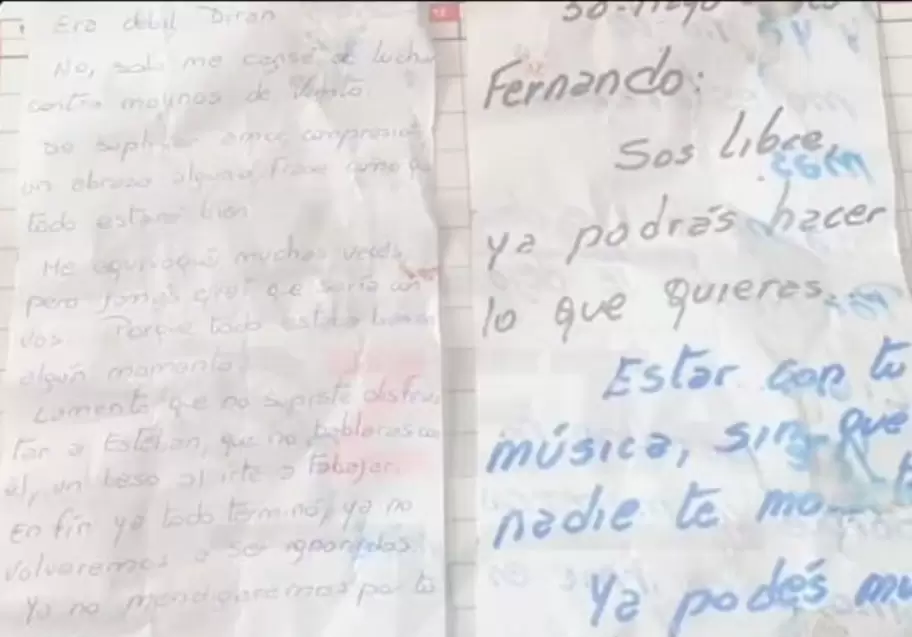 Era debil Diran
No, solo me cansé de lucha
contra molynos de Viento.
De suplicar amor, comprensió
un abrazo alguna frase como q
todo estará bien
Me equivoqué muchas veces
pero jamás creí qe sería con
vos. Porque todo estaba bien
algún momento
Lamento que no supiste disfru
tar a Esteban, que no hablaras co
él, un beso al irte a Trabajar.
En fin ya todo terminó, ya no
volveremos a ser ignorados
Ya no mendigaremos por tu
30-Mayo
Fernando:
Sos libre,
ya podrás hacer
lo que quieras.
Estar con tu
música, sin que
nadie te mo
Ya podés mu